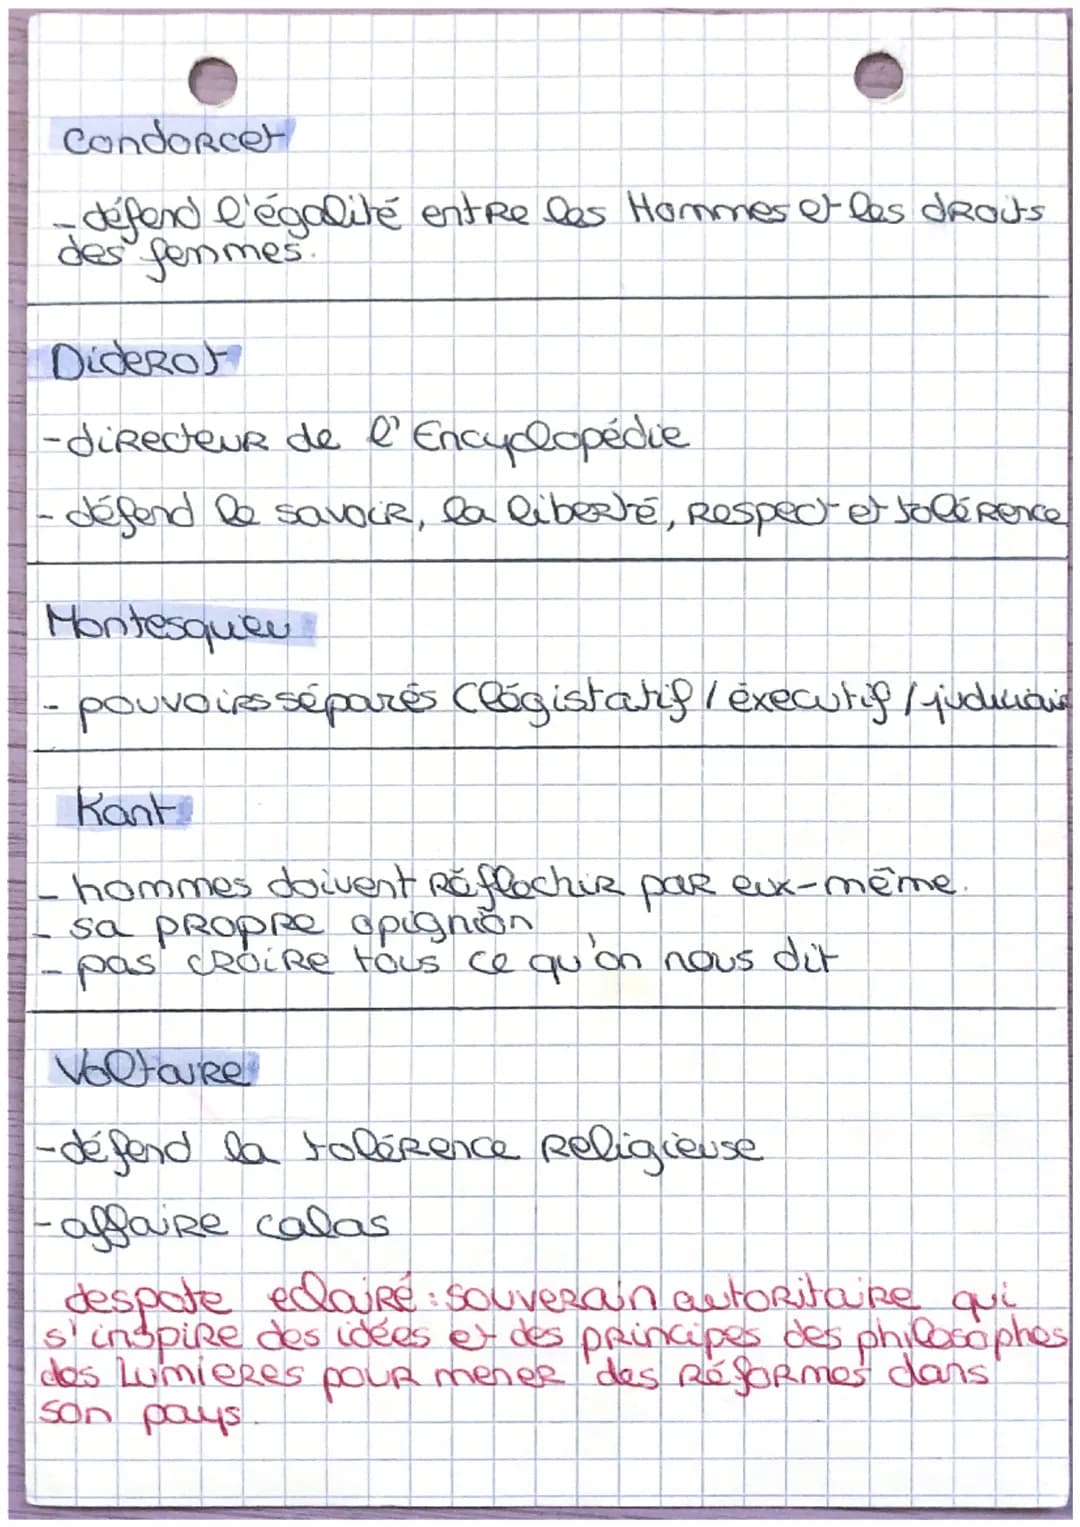 Condorcet
- défend l'égalité entre les Hommes et les droits
des femmes.
Diderot
- directeur de l'Encyclopédie
- défend le savoir, la liberté, respect et tolérence
Montesquieu
- pouvoirs séparés (légistatif / éxecutif / judiciair
Kant
- hommes doivent réflechir par eux-même.
- sa propre opignion
- pas croire tous ce qu'on nous dit
Voltaire
- défend la tolérence religieuse
- affaire calas
despote eclairé : souverain autoritaire qui
s'inspire des idées et des principes des philosophes
des lumieres pour mener des réformes dans
son pays.